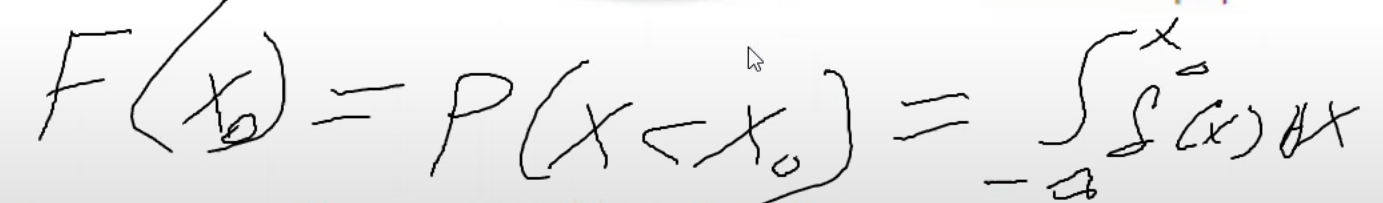 F(x₀) = P(X < X₀) = ∫_{-∞}^{x₀} f(x) dx